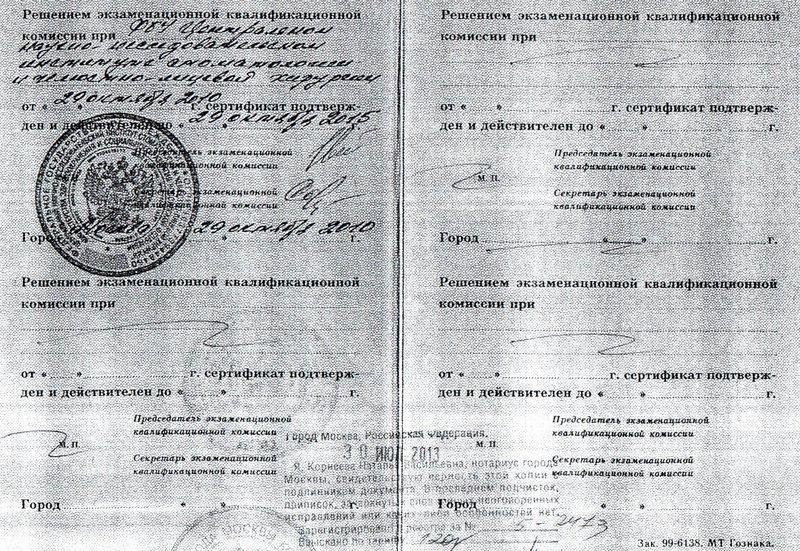 Решением экзаменационной квалификационной
комиссии при ФГУ Центральном
научно-исследовательском
институте стоматологии
и челюстно-лицевой хирургии
от « 29 октября 2010 г. сертификат подтверж-
ден и действителен до « 29 октября 2015
Председатель экзаменационной
квалификационной комиссии
Секретарь экзаменационной
комиссии
Город Москва 29 октября 2010
Решением экзаменационной квалификационной
комиссии при
от « » г. сертификат подтверж-
ден и действителен до « » г.
Председатель экзаменационной
квалификационной комиссии
М. П.
Секретарь экзаменационной
квалификационной комиссии
Город « » г.
Решением экзаменационной квалификационной
комиссии при
от « » г. сертификат подтверж-
ден и действителен до « » г.
Председатель экзаменационной
квалификационной комиссии
М. П.
Секретарь экзаменационной
квалификационной комиссии
Город « » г.
Решением экзаменационной квалификационной
комиссии при
от « » г. сертификат подтверж-
ден и действителен до « » г.
Председатель экзаменационной
квалификационной комиссии
М. П.
Секретарь экзаменационной
квалификационной комиссии
Город г.
Город Москва, Российская Федерация.
30 ИЮЛ 2013
Я, Корнеева Наталья Васильевна, нотариус города
Москвы, свидетельствую верность этой копии с
подлинником документа. В последнем подчисток,
приписок, зачеркнутых слов и иных неоговоренных
исправлений или каких-либо особенностей нет.
Зарегистрировано в реестре за № 5-2473
Взыскано по тарифу
Зак. 99-6138. МТ Гознака.